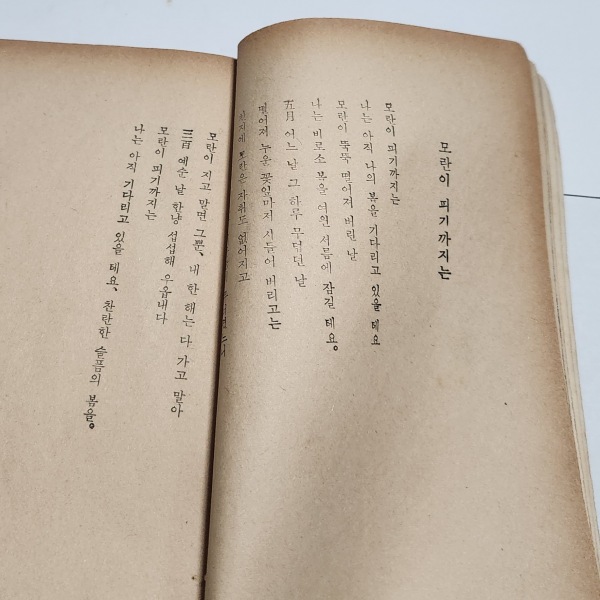 모란이 피기까지는
모란이 피기까지는
나는 아직 나의 봄을 기다리고 있을 테요
모란이 뚝뚝 떨어져 버린 날
나는 비로소 봄을 여읜 서름에 잠길 테요。
五月 어느 날 그 하루 무덥던 날
떨어져 누운 꽃잎마저 시들어 버리고는
천지에 모란은 자취도 없어지고
모란이 지고 말면 그뿐、 내 한 해는 다 가고 말아
三百 예순 날 한냥 섭섭해 우옵내다
모란이 피기까지는
나는 아직 기다리고 있을 테요、 찬란한 슬픔의 봄을。